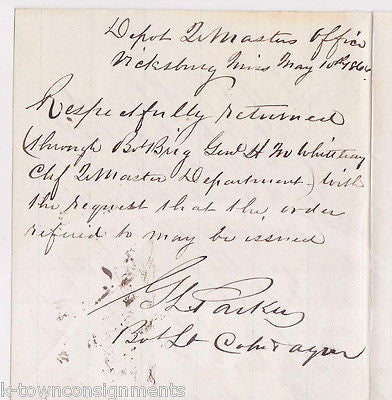 Depot Qr Masters Office
Vicksburg Miss May 10th 1866
Respectfully returned
(through Bvt Brig Genl H M Whittlesey
Chf Qr Master Department) with
the request that the order
refered to may be issued
G L Parker
Bvt Lt Col &
k-townconsignments